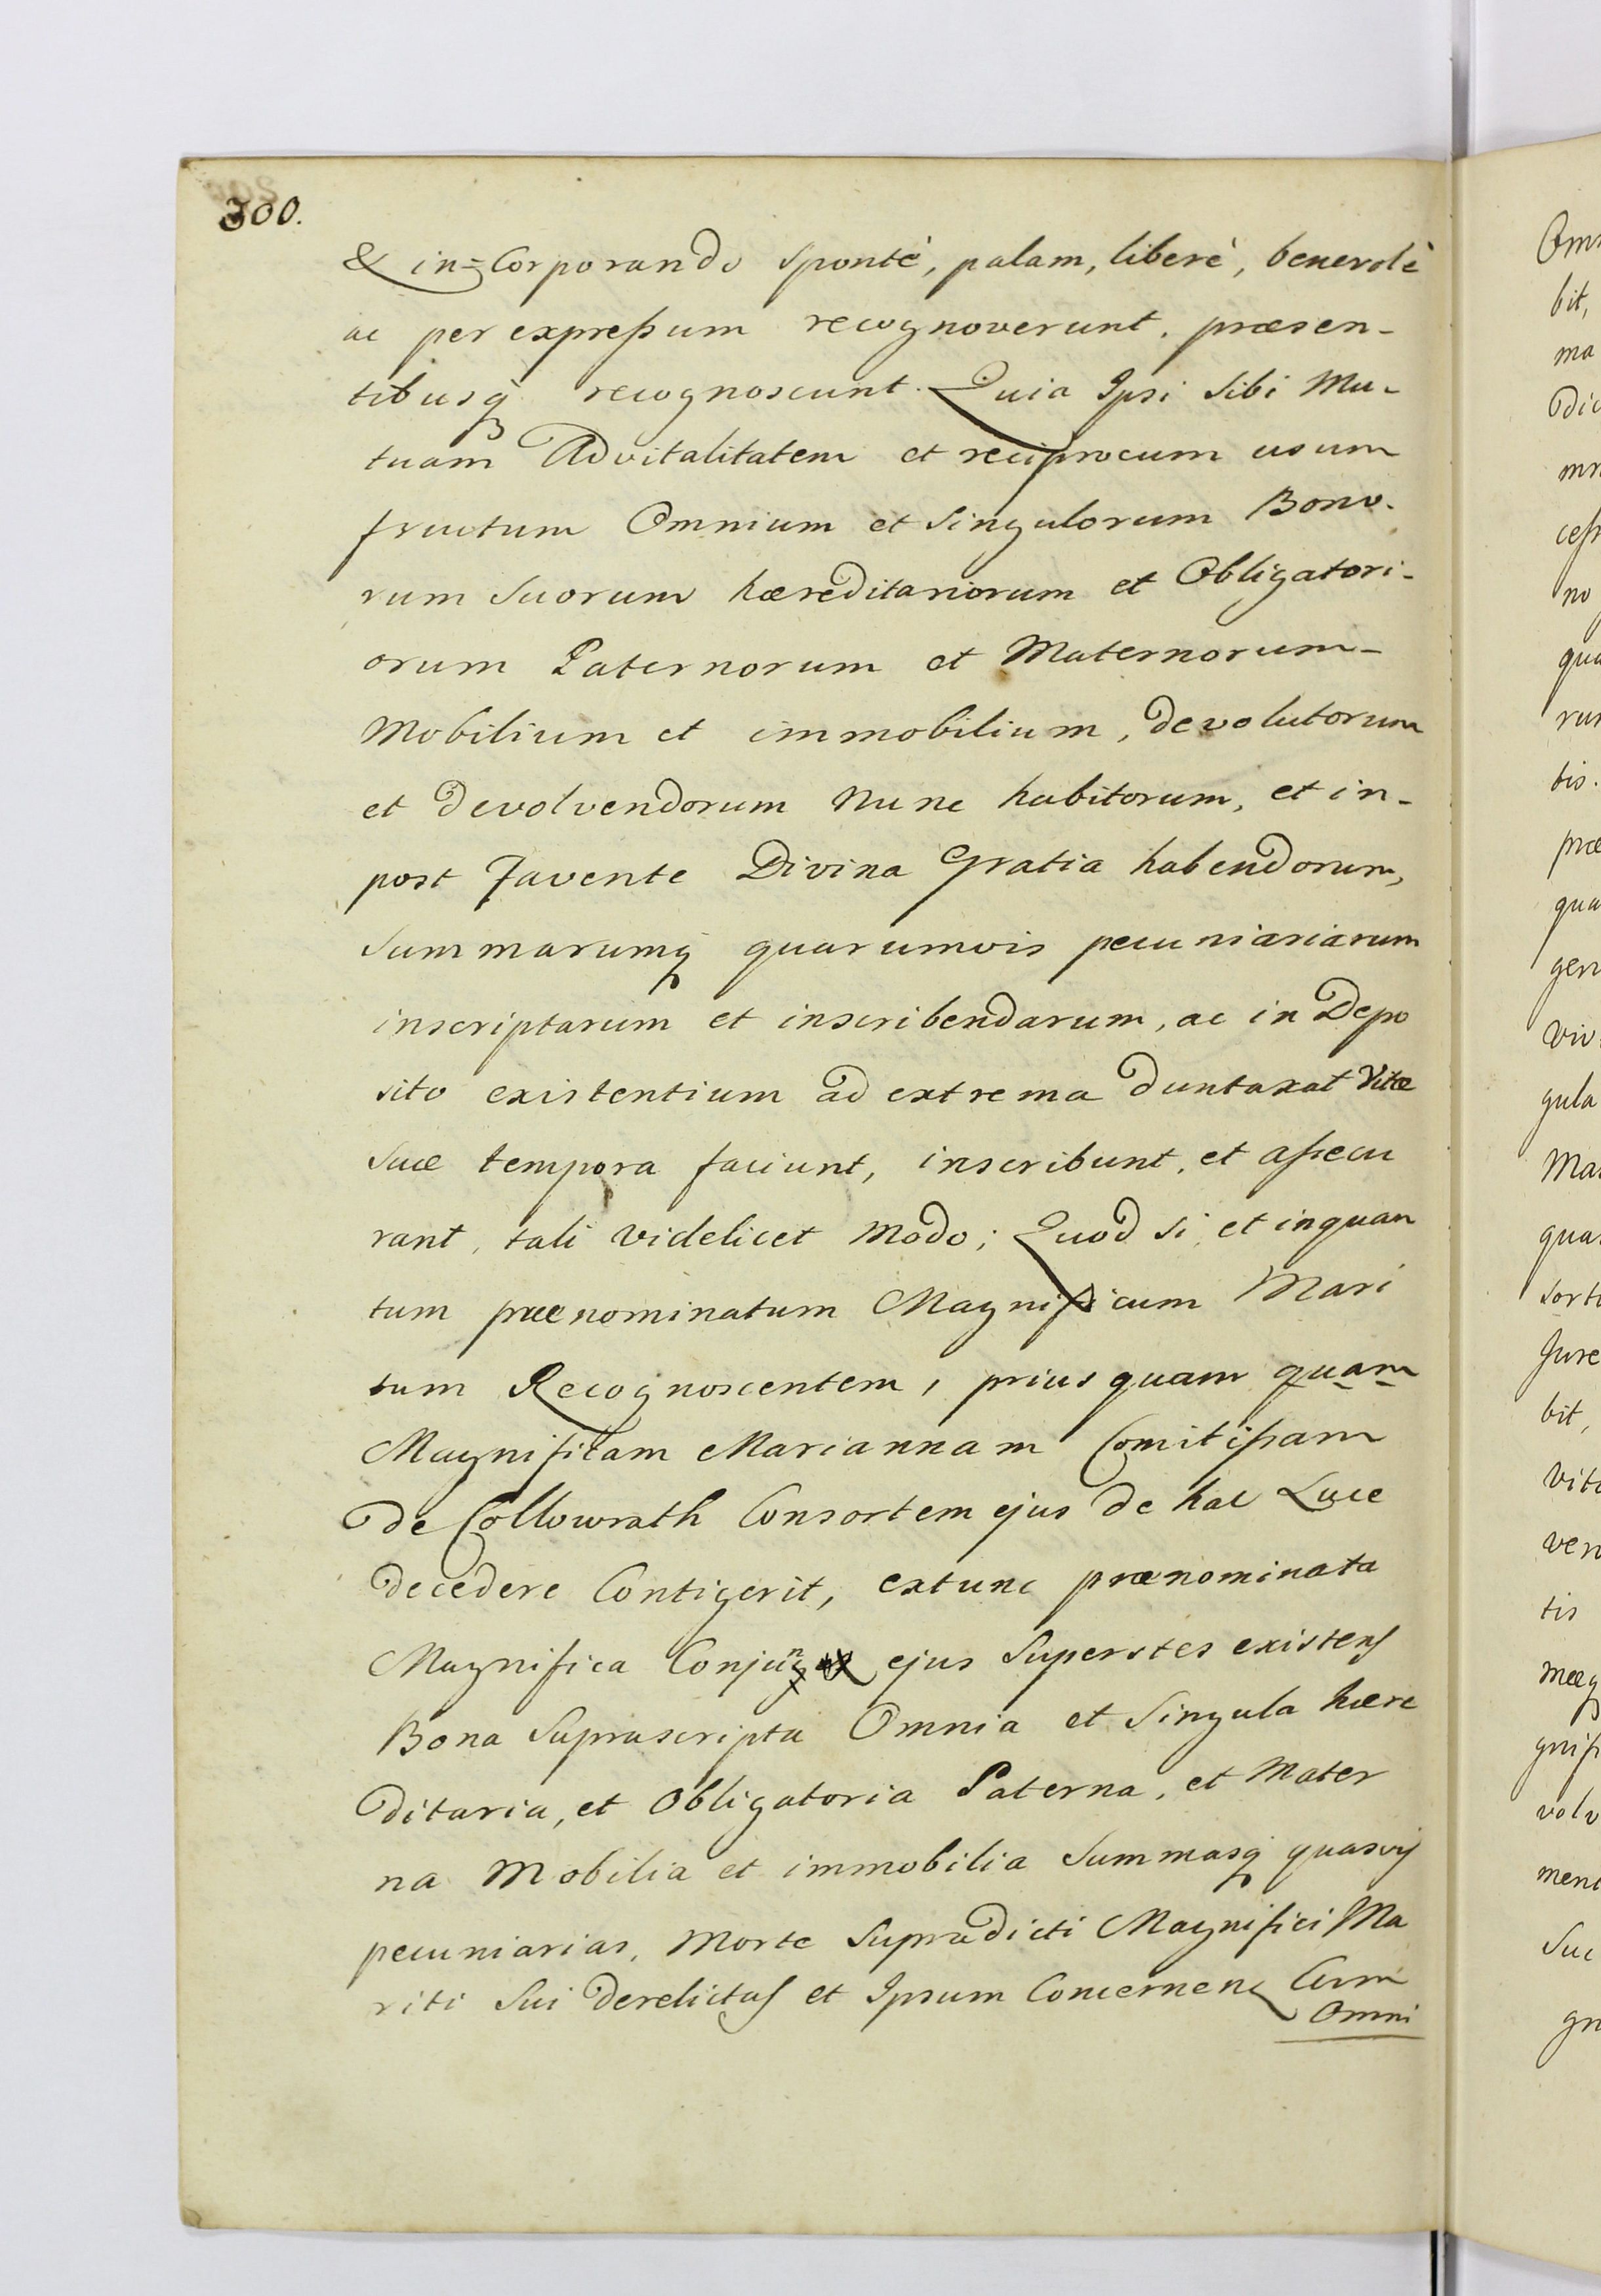 300.
& in=Corporando spontè, palam, liberè, benevolè
ac per expreſsum recognoverunt, præsen-
tibusq recognoscunt. Quia Ipsi Sibi Mu-
tuam Advitalitatem et reciprocum usum
fructum Omnium et Singulorum Bono-
rum Suorum hæreditariorum et Obligatori-
orum Paternorum et Maternorum-
Mobilium et immobilium, devolutorum
et devolvendorum Nunc habitorum, et in-
post Favente Divina Gratia habendorum,
Summarumq quarumvis pecuniariarum
inscriptarum et inscribendarum, ac in Depo
sito existentium ad extrema duntaxat Vitæ
Suæ tempora faciunt, inscribunt, et aſsecu
rant, tali videlicet Modo; Quod si, et inquan
tum prænominatum Magnificum Mari
tum Recognoscentem, prius quam quam
Magnificam Mariannam Comitiſsam
de Collowrath Consortem ejus de hac Luce
decedere Contigerit, extunc prænominata
Magnifica Conjunx ejus Superstes existens
Bona Suprascripta Omnia et Singula hære
ditaria, et Obligatoria Paterna, et Mater
na Mobilia et immobilia Summasq quasvis
pecuniarias, Morte Supradicti Magnifici Ma
riti Sui derelictas et Ipsum Concernen Cum
Omni
Om
bit,
ma
Dic
no
qua
rum
tis.
præ
qua
gen
viv
gula
Ma
qua
sort
Jure
bit,
vita
ven
tis
mæq
gnifi
volv
men
Suc
gn